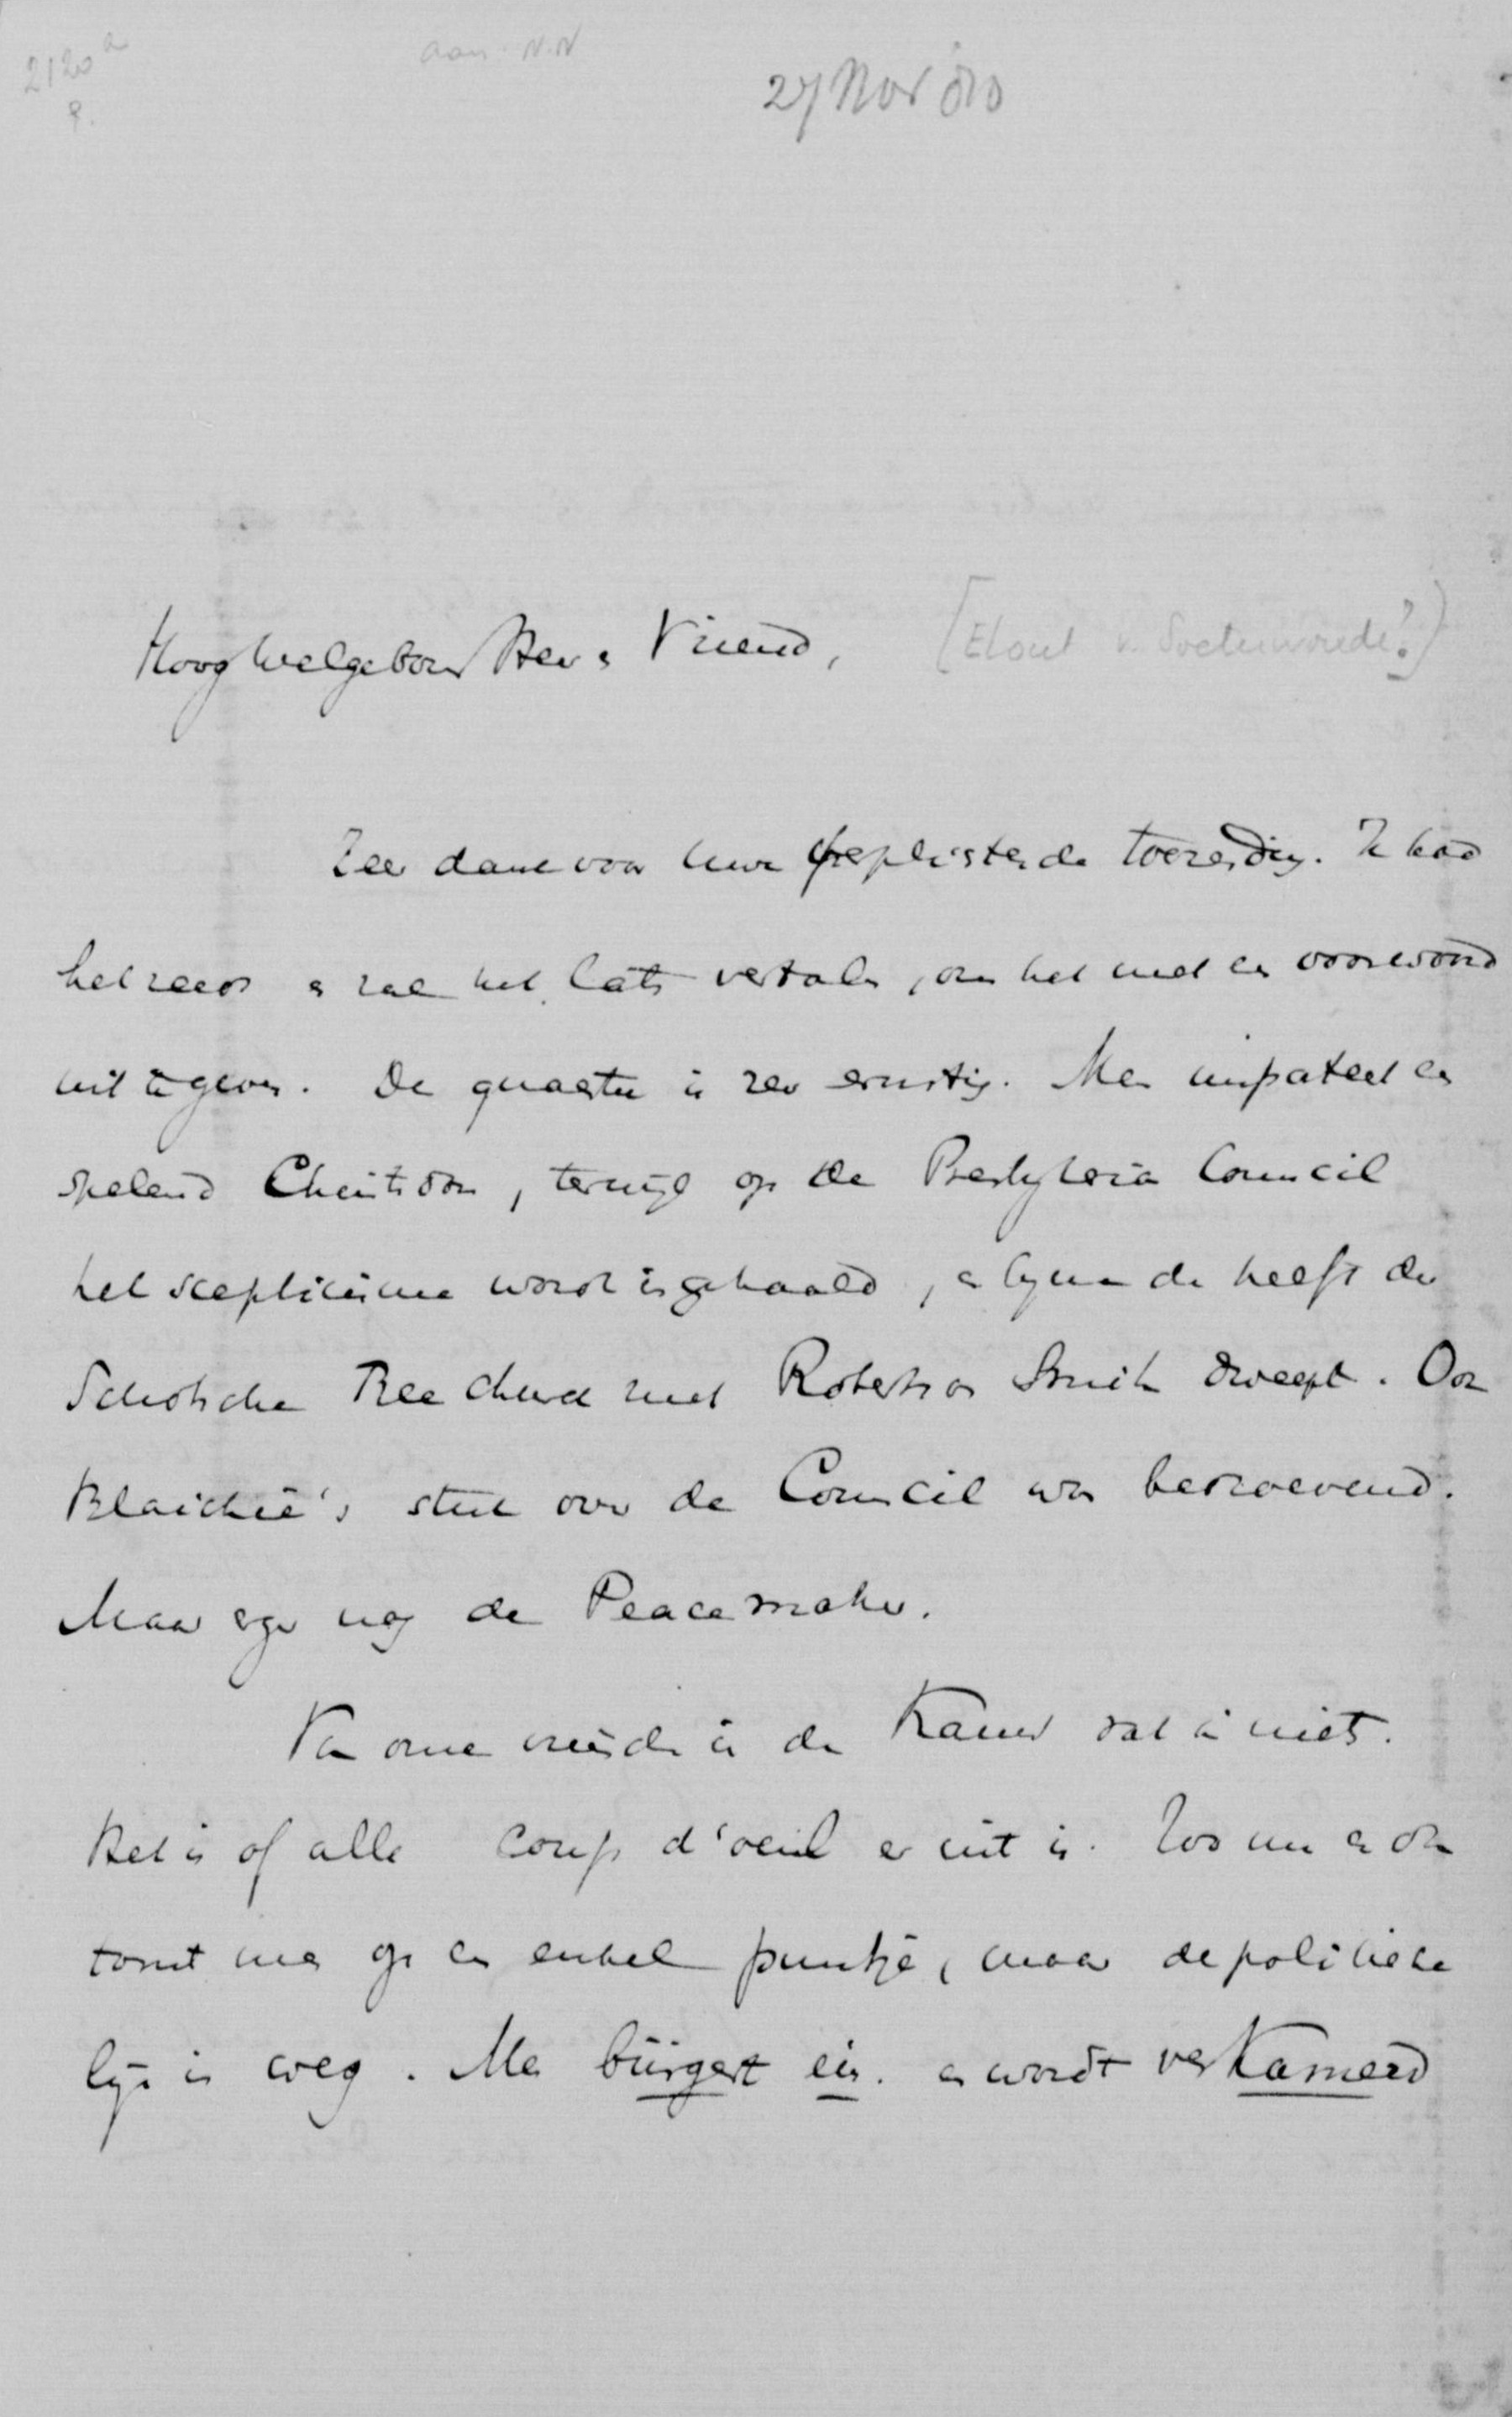 2120a
P.
aan N.N
27 Nov 80
Hoog Welgeboren Heer & Vriend,
[Elout v. Soeterwoude?]
Zeer dank voor uwe toezending. Ik had
het reeds & zal het laten vertalen, om het met een voorwoord
uit te geven. De quaestie is zeer ernstig. Men
spelend Christendom, terwijl op de Presbyterian Council
het scepticisme wordt ingehaald, & bijna de helft der
Schotsche Free Church met Robertson Smith dweept. Ook
Blaickie's stuk over de Council was bedroevend.
Maar erger nog de Peacemaker.
Van onze vrienden in de Kamer vat ik niets.
Het is of alle coup d'oeuil er uit is. Zoo nu & dan
komt men op een enkel puntje, maar de politieke
lijn is weg. Men burgert ein. & wordt verkamerd